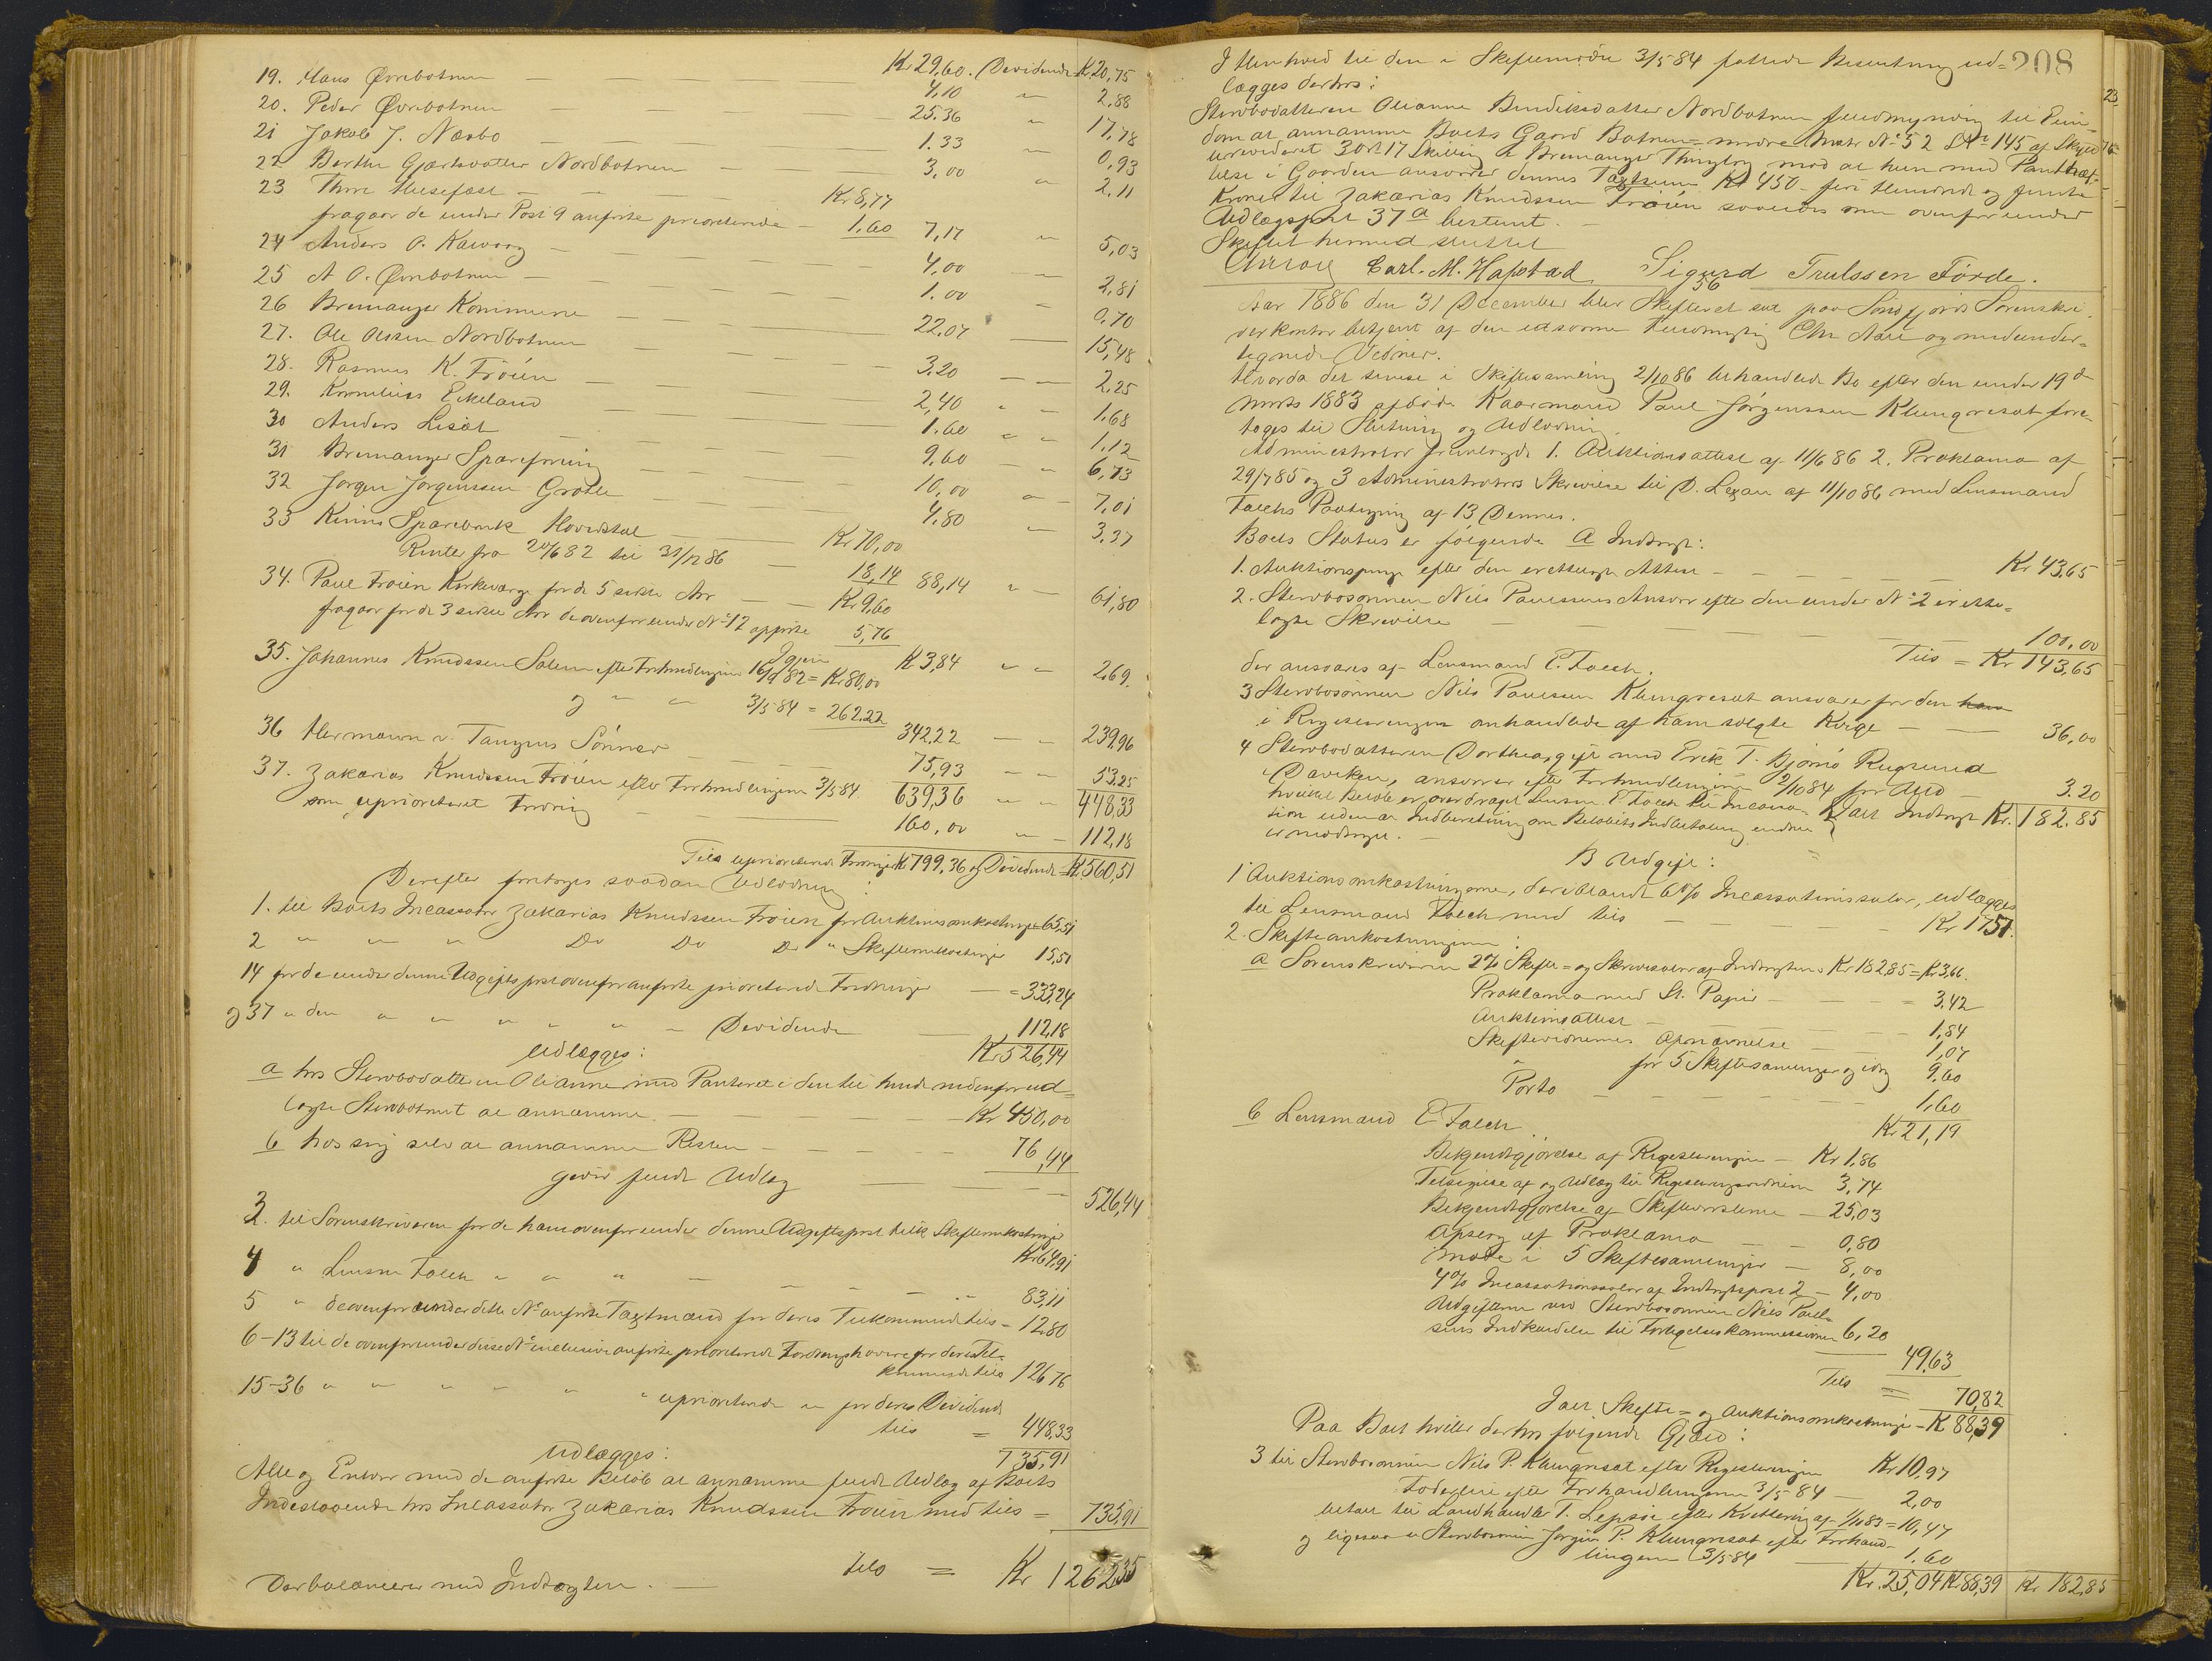 19. Hans Øvrebotnen — — — Kr 29,60. Dividende Kr 20,75
20. Peder Øvrebotnen — — — 4,10 " 2,88
21 Jakob J. Næsbø — — — 25.36 " 17,78
22 Berthe Gjertsdatter Nordbotnen — — 1.33 " 0,93
23 Thore Husefæst — — — 3,00 " 2,11
Kr 8,77
fragaar de under Post 9 anførte prioriterede — 1,60 7,17 " 5,03
24 Anders O. — — — 4,00 — 2,81
25 A O. Øvrebotnen — — — 1.00 — 0,70
26 Bremanger Kommune — — — 22.07 — 15,48
27. Ole Olsen Nordbotnen — — — 3.20 — 2,25
28. Rasmus K. Frøien — — — 2,40 " — 1,68
29. Kornelius Eikeland — — — 1.60 " — 1,12
30 Anders — — — 9.60 — " 6,73
31 Bremanger Spareforening — — — 10,00 " — 7,01
32 Jørgen Jørgenssen Grotle — — — 4.80 — 3,37
33 Kinns Sparebank Hovedstol — Kr 70,00
Renter fra 20/6 82 til 31/12 86 — 18,14 88,14 " — 61,80
34. Paul Frøien Kirkeværge for de 5 sidste Aar — Kr 9,60
fragaar for de 3 sidste Aar de ovenfor under No 12 opførte 5,76
Igjen Kr 3,84 " " 2,69.
35. Johannes Knudssen Salen efter Forhandlingen 16/9 82 = Kr 80,00
og " " 3/5 84 = 262.22
342,22 — — 239,96
36 Hermann v. Tangens Sønner — — 75,93 — — 53.25
639,36 " " 448,33
37. Zakarias Knudssen Frøien efter Forhandlingen 3/5 84
som uprioriteret Fordring — — 160,00 " — 112,18
Tils uprioriterede Fordringer Kr 799,36 og Dividende = Kr 560,51
Derefter foretoges saadan Udlodning:
1. til Boets Incassator Zakarias Knudssen Frøien for Auktionsomkostninger = 65,51
2 " " " Do Do Do " Skifteomkostninger 15,51
14 for de under denne Udgiftspost ovenfor anførte prioriterede Fordringer — = 333,24
og 37 " den " " " " " " Dividende — 112,18
Kr 526,44
Udlægges:
a hos Stervbodatteren Olianne med Panteret i den til hende nedenfor ud=
lagte Stervbolod at annamme — — — Kr 450,00
b hos sig selv at annamme Resten — — — 76,44
gjør fuldt Udlæg — — — 526,44
3. til Sorenskriveren for de ham ovenfor under denne Udgiftspost tilk. Skifteomkostninger
Kr 64,91
4 " Lensm Falch " " " — — " 83,11
5 " de ovenfor under dette No anførte Taxtmænd for deres Tilkommende tils = 12,80
6–13 til de ovenfor under disse No inclusive anførte prioriterede Fordringshavere for deres Til=
kommende tils 126 76
15–36 " " " " " " uprioriterede " for deres Dividende
tils = 448,33
735,91
Udlægges:
Alle og Enhver med de anførte Beløb at annamme fuldt Udlæg af Boets
Indestaaende hos Incassator Zakarias Knudssen Frøien med tils = 735,91
tils = Kr 1262,35
Der balancerer med Indtægten. —
208
I Henhold til den i Skiftemøde 3/5 84 fattede Beslutning ud=
lægges derhos:
Stervbodatteren Olianne Bendiksdatter Nordbotnen til Eien=
dom at annamme Boets Gaard Botnen= nordre Matr No 52 LNo 145 af Skyld
urevideret 3 ort 17 Skilling i Bremanger Thinglag mod at hun med Panthæf=
telse i Gaarden ansvarer dennes Taxtsum Kr 450 — fire Hundrede og femti
Kroner til Zakarias Knudssen Frøien saaledes som ovenfor under
Udlægspost 37 a bestemt. —
Skiftet hermed sluttet
Carl. M. Hafstad Sigurd Trulssen Førde.
56
Aar 1886 den 31 December blev Skifteret sat paa Søndfjords Sorenskri=
verkontor betjent af den edsvorne Fuldmægtig og medunder=
tegnede Vidner.
Hvorda det senest i Skiftesamling 2/10 86 behandlede Bo efter den under 19de
Marts 1883 afdøde Kaarmand Paul Jørgenssen Klungresæt fore=
toges til Slutning og Udlodning.
Administrator fremlagde 1. Auktionsattest af 11/6 86 2. Proklama af
29/7 85 og 3 Administrators Skrivelse til D. af 11/10 86 med Lensmand
Falchs Paategning af 13 Dennes.
Boets Status er følgende A Indtægt:
1. Auktionspenge efter den erettelagte Attest — — — — Kr. 43,65
2. Stervbosønnen Nils Paulssens Ansvar efter den under No 2 irette=
lagte Skrivelse — — — — 100,00
Tils = Kr 143,65
der ansvares af Lensmand E. Falch.
3 Stervbosønnen Nils Paulssen Klungresæt ansvarer for den
i Registreringen omhandlede af ham solgte Kvige — — 36,00
4 Stervbodatteren Dorthea, gift med Erik T. Bjørnø Rugsund
i Daviken, ansvarer efter Forhandlingen 2/10 84 for Uld — 3.20
hvilket Beløb er overdraget Lensm E. Falch til Incassa= } Ialt Indtægt Kr. 182.85
tion uden at Indberetning om Beløbets Indbetaling endnu
er modtaget. —
B Udgift:
1 Auktionsomkostningerne, deriblandt 6% Incassationssalær, udlægges
til Lensmand Falch med tils — — — — Kr 17,57.
2. Skifteomkostningerne:
a Sorenskriveren 2% Skifte= og Skrivesalær af Indtægten Kr 182,85 = Kr 3,66.
Proklama med St. Papir — — = 3.42
Auktionsattest — — — 1,84
Skiftevidnernes Opnævnelse — — 1,04
" for 5 Skiftesamlinger og idag 9.60
Porto — — — 1,60
Kr 21,19
b Lensmand E Falch
Bekjendtgjørelse af Registreringen — Kr 1,86
Tilsigelse af og Udlæg til Registreringsvidnerne 3,74
Bekjendtgjørelse af Skiftevarslerne — 25,03
Opslag af Proklama — — 0,80
Møde i 5 Skiftesamlinger — 8,00
4% Incassationssalær af Indtægtspost 2 — 4,00
Udgifterne ved Stervbosønnen Nils Paul=
sens Indkaldelse til Forligelseskommissionen 6,20
49,63
Tils = 70,82
Ialt Skifte= og Auktionsomkostninger — Kr 88,39
Paa Boet hviler derhos følgende Gjæld:
3 til Stervbosønnen Nils P. Klungresæt efter Registreringen Kr 10,97
efter Forhandlingerne 3/5 84 — 2,00
betalt til Landhandler T. Lepsøe efter Kvittering af 1/10 83 = 10,47
og ligesaa til Stervbosønnen Jørgen P. Klungresæt efter Forhand=
lingerne 3/5 84 — 1.60
Kr. 25,04 Kr 88,39 Kr 182,85